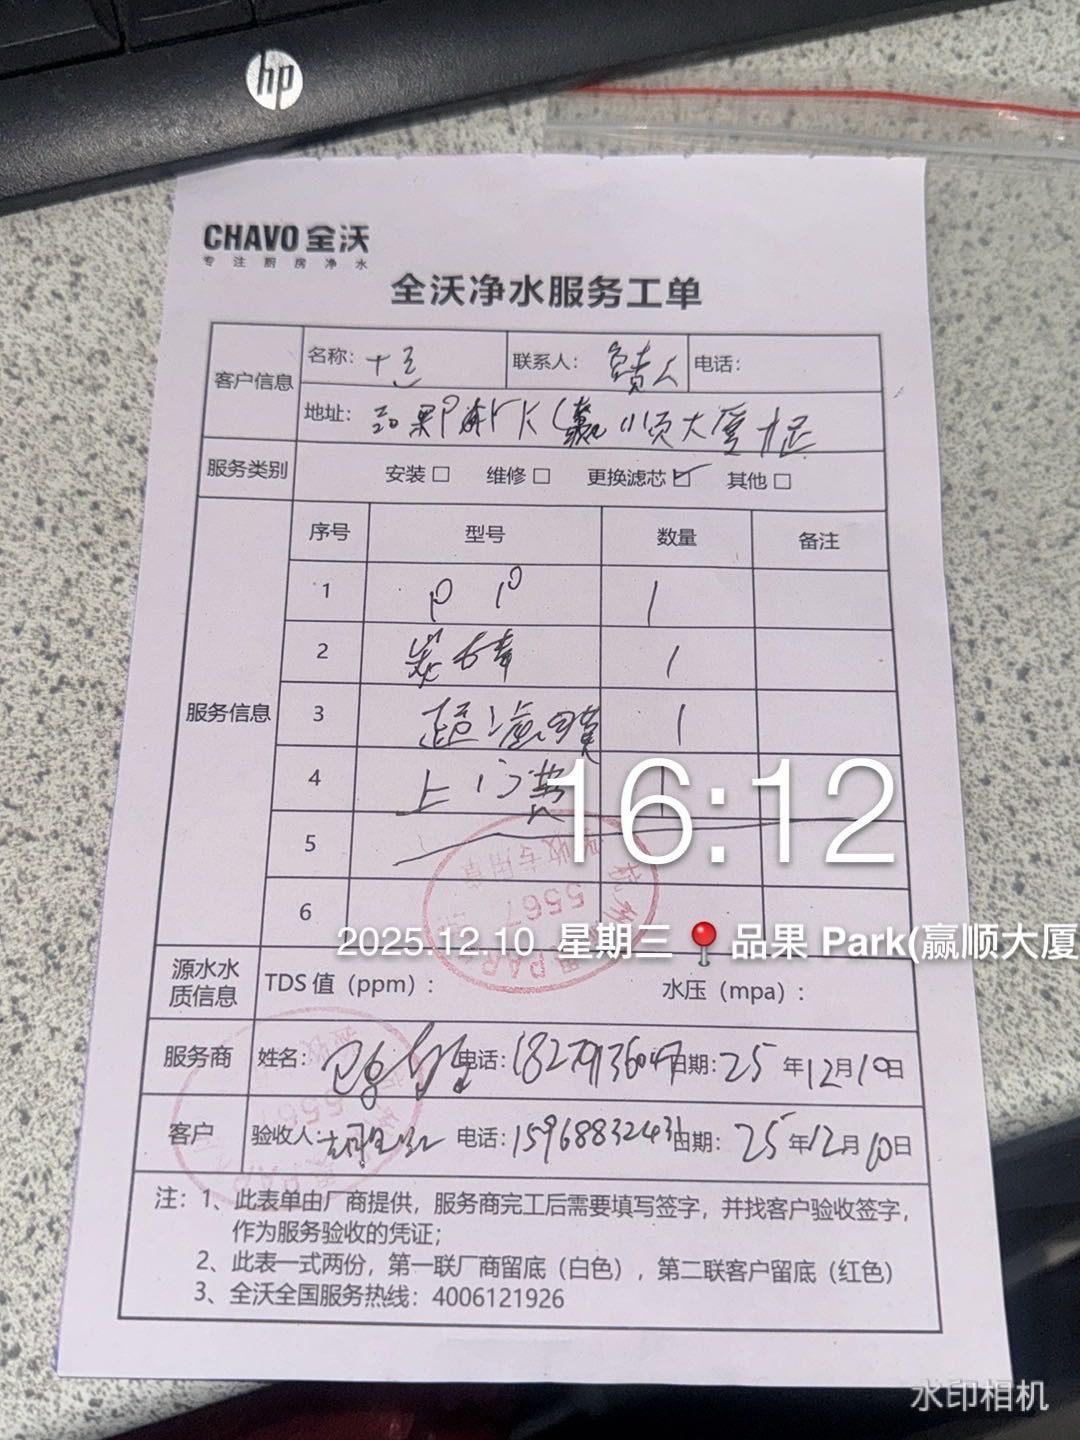 hp
CHAVO 全沃
专注厨房净水
全沃净水服务工单
客户信息
名称：十足 联系人：负责人 电话：
地址：品果Park(赢顺大厦十足
服务类别 安装□ 维修□ 更换滤芯☑ 其他□
服务信息
序号 型号 数量 备注
1 PP 1
2 炭棒 1
3 超滤膜 1
4 上门费 1
5
6
16:12
2025.12.10 星期三 品果 Park(赢顺大厦
验收专用章
5567
源水水质信息 TDS 值（ppm）： 水压（mpa）：
服务商 姓名： 电话：18279136047 日期：25年12月10日
客户 验收人： 电话：15968832431 日期：25年12月10日
注：1、此表单由厂商提供，服务商完工后需要填写签字，并找客户验收签字，
作为服务验收的凭证；
2、此表一式两份，第一联厂商留底（白色），第二联客户留底（红色）
3、全沃全国服务热线：4006121926
水印相机